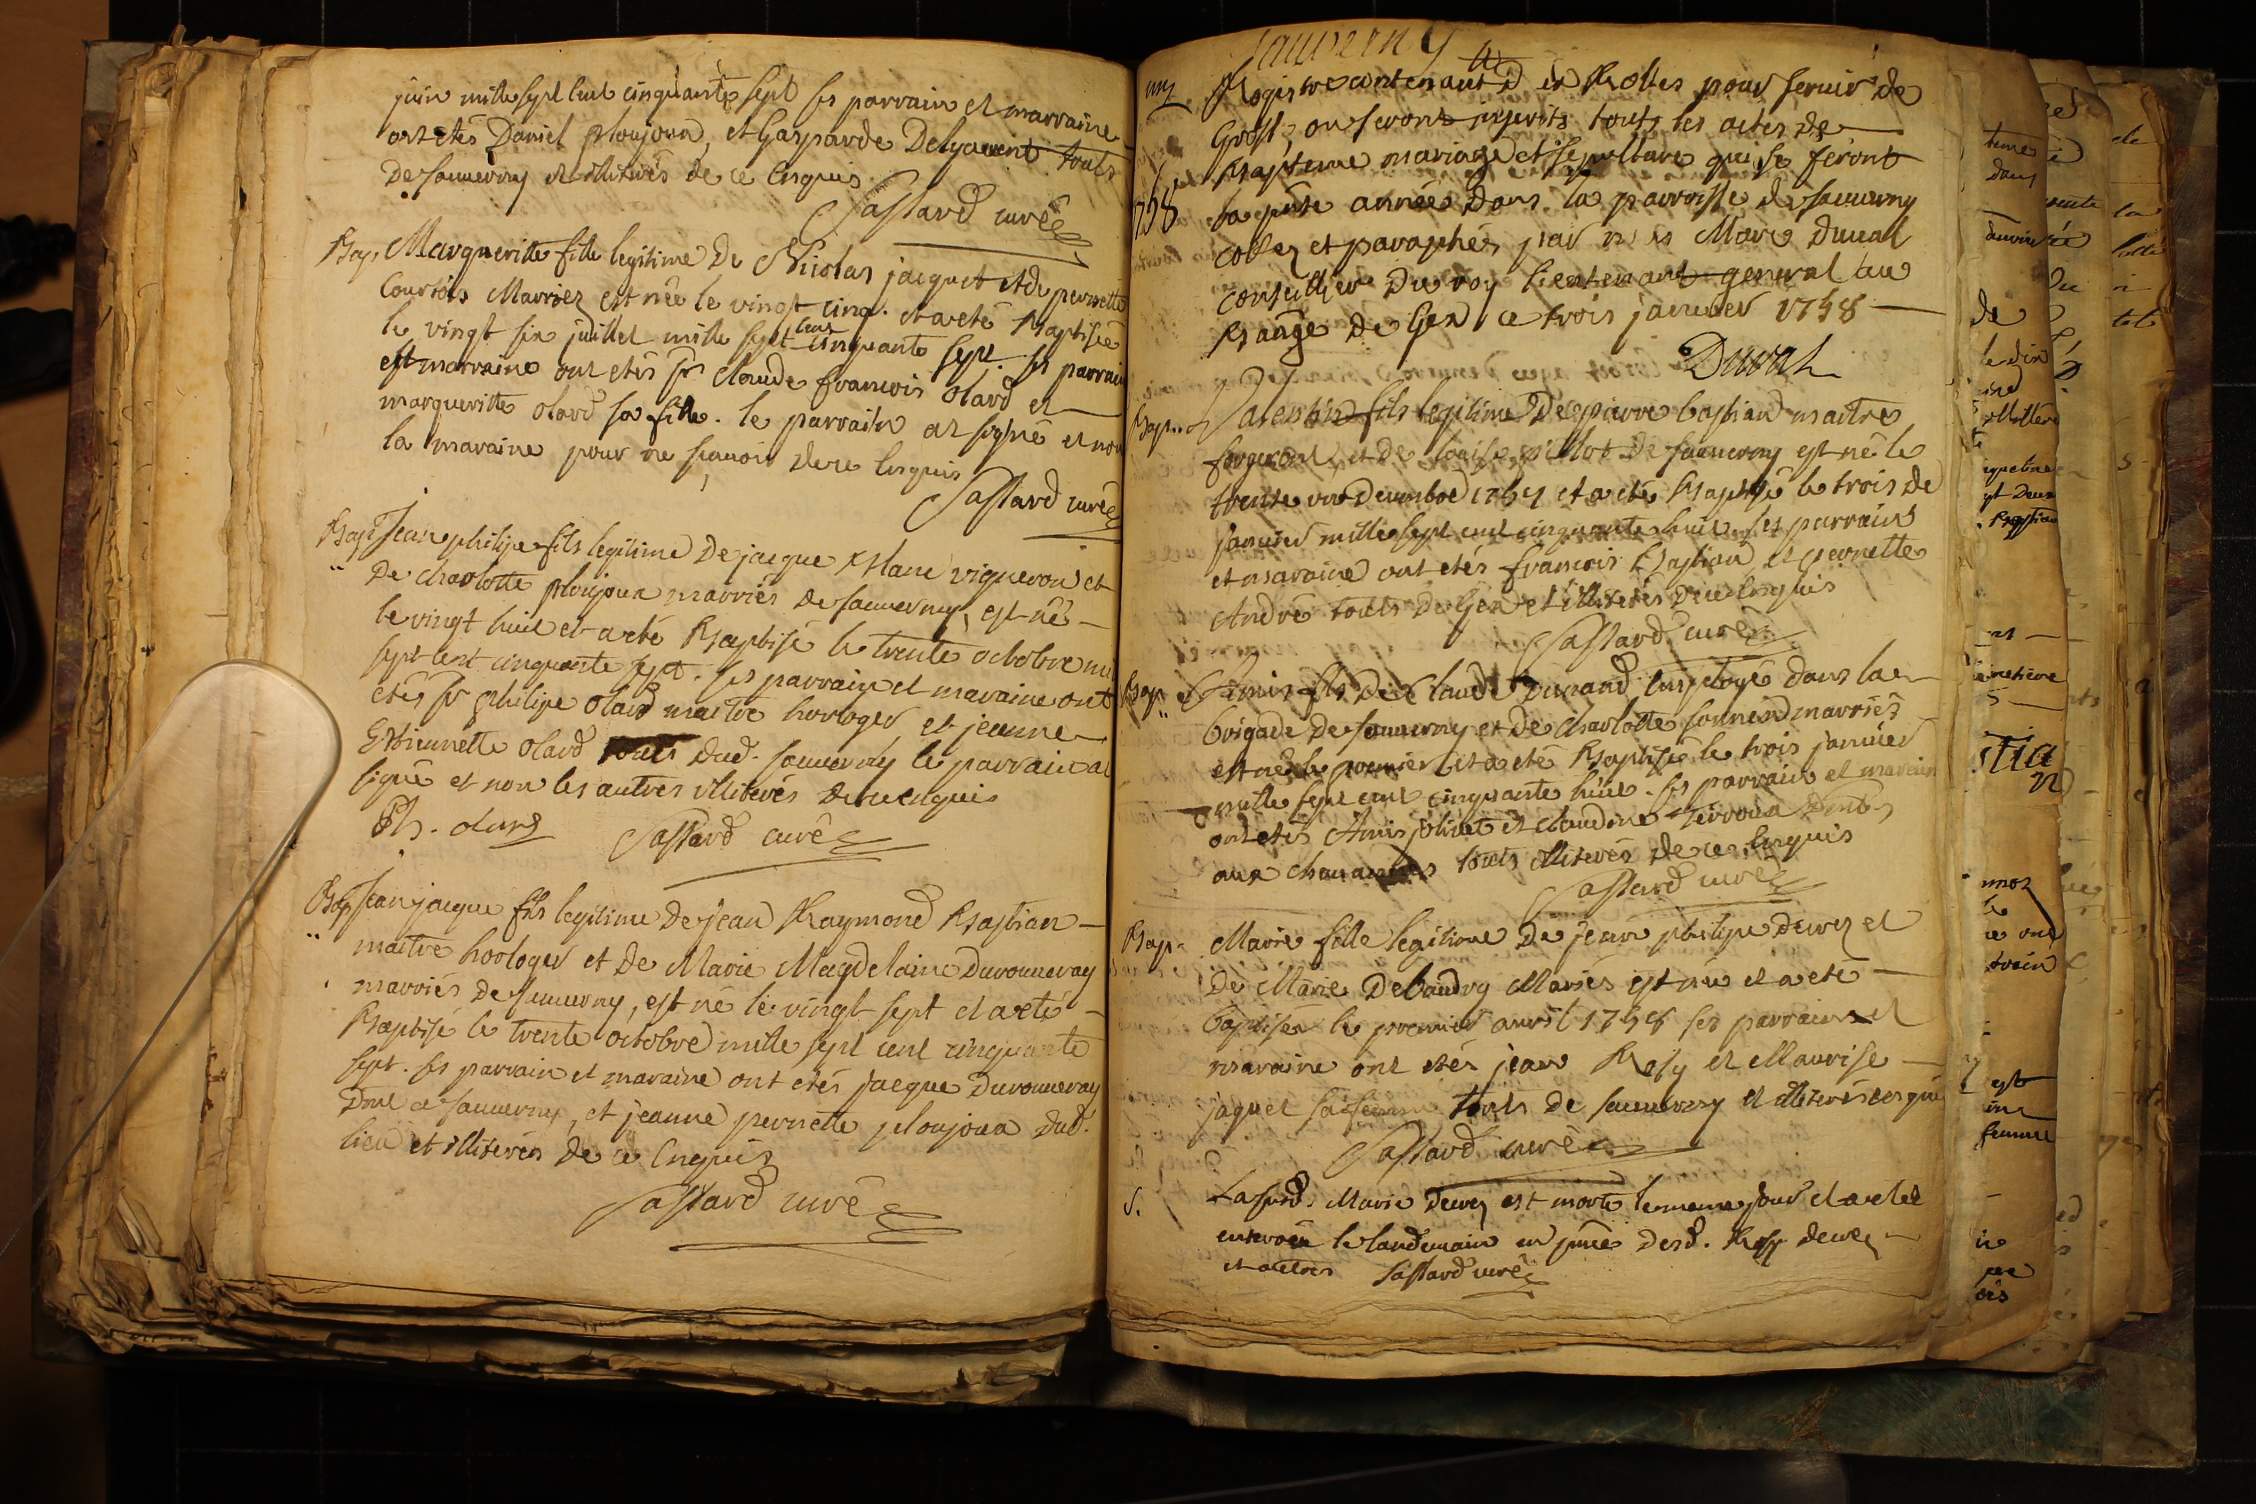 juin mille sept cent cinquante sept ses parrain et marraine
ont etés Daniel ploujoux, et Gasparde touts
De sauverny et illiterés de ce Enquis
Sastard curé
Bap. Margueritte fille legitime De Nicolas jacquet et de pernette
Courtois Marriez est née le vingt cinq. et a eté Baptisée
le vingt six juillet mille sept cent cinquante sept. ses parrain
est marraine ont etés Sr claude francois olard et
margueritte olard sa fille. le parrain at signé et non
la maraine pour ne scauoir dece Enquis
Sastard curé
Bap. Jean philipe fils legitime De jacque vigneron et
De charlotte ploujoux marriés de sauverny, est né
le vingt huit et a eté Baptisé le trente octobre mil
sept cent cinquante sept. ses parrain et maraine ont
etés Sr philipe olard maitre horloger et jeanne
Estiennette olard touts dud. sauverny le parrain at
signé et non les autres illiterés de ce enquis
Ph. olard Sastard curé
Bap Jean jacque fils legitime De jean Raymond Bastian
maitre horloger et De Marie Magdelaine Duronneray
marriés De sauverny, est né le vingt sept et a eté
Baptisé le trente octobre mille sept cent cinquante
sept. ses parrain et maraine ont etés jacque Duronneray
Dmt a sauverny, et jeanne pernette ploujoux dud.
lieu et illiterés De ce Enquis
Sastard curé
Sauverny
Registre contenant et Rolles pour seruir de
Gross, ou seront touts les actes de
Bapteme mariage et sepulture qui se feront
1758 la pnte année Dans la parroisse de sauverny
cottez et paraphés par nous Marc Duual
conseillier Du roy lieutenant general au
Baliage De Gex ce trois janvier 1758
Duval
Bap. Valentin fils legitime De pierre Bastian maitre
forgeront, et de louise pillot de sauverny est né le
trente un Decembre 1757 et a eté Baptisé le trois de
janvier mille sept cent cinquante huit ses parrains
et maraine ont etés francois Bastian et pernette
André touts De Gex et illiterés de ce enquis
Sastard curé
Bap Amis fils De Claude Dunand Employé dans la
brigade De sauverny et de charlotte marriés
est né le premier et a eté Baptisé le trois janvier
mille sept cent cinquante huit. ses parrain et maraine
ont etés Amis jolivet et claudine Dmt
aux touts illiterés de ce enquis
Sastard curé
Bap. Marie fille legitime De jean philipe Deurez et
De Marie Debaudry Mariés est née et a eté
baptisée le premier auvril 1758 ses parrains et
maraine ont etés jean Rosy et Maurise
jaquet sa femme touts De sauverny et illiterés enquis
Sastard curé
S. La susd. Marie Deurez est morte le meme jour et a etée
enterrée le landemain en pnce Desd. Rosy deurez
et autres Sastard curé